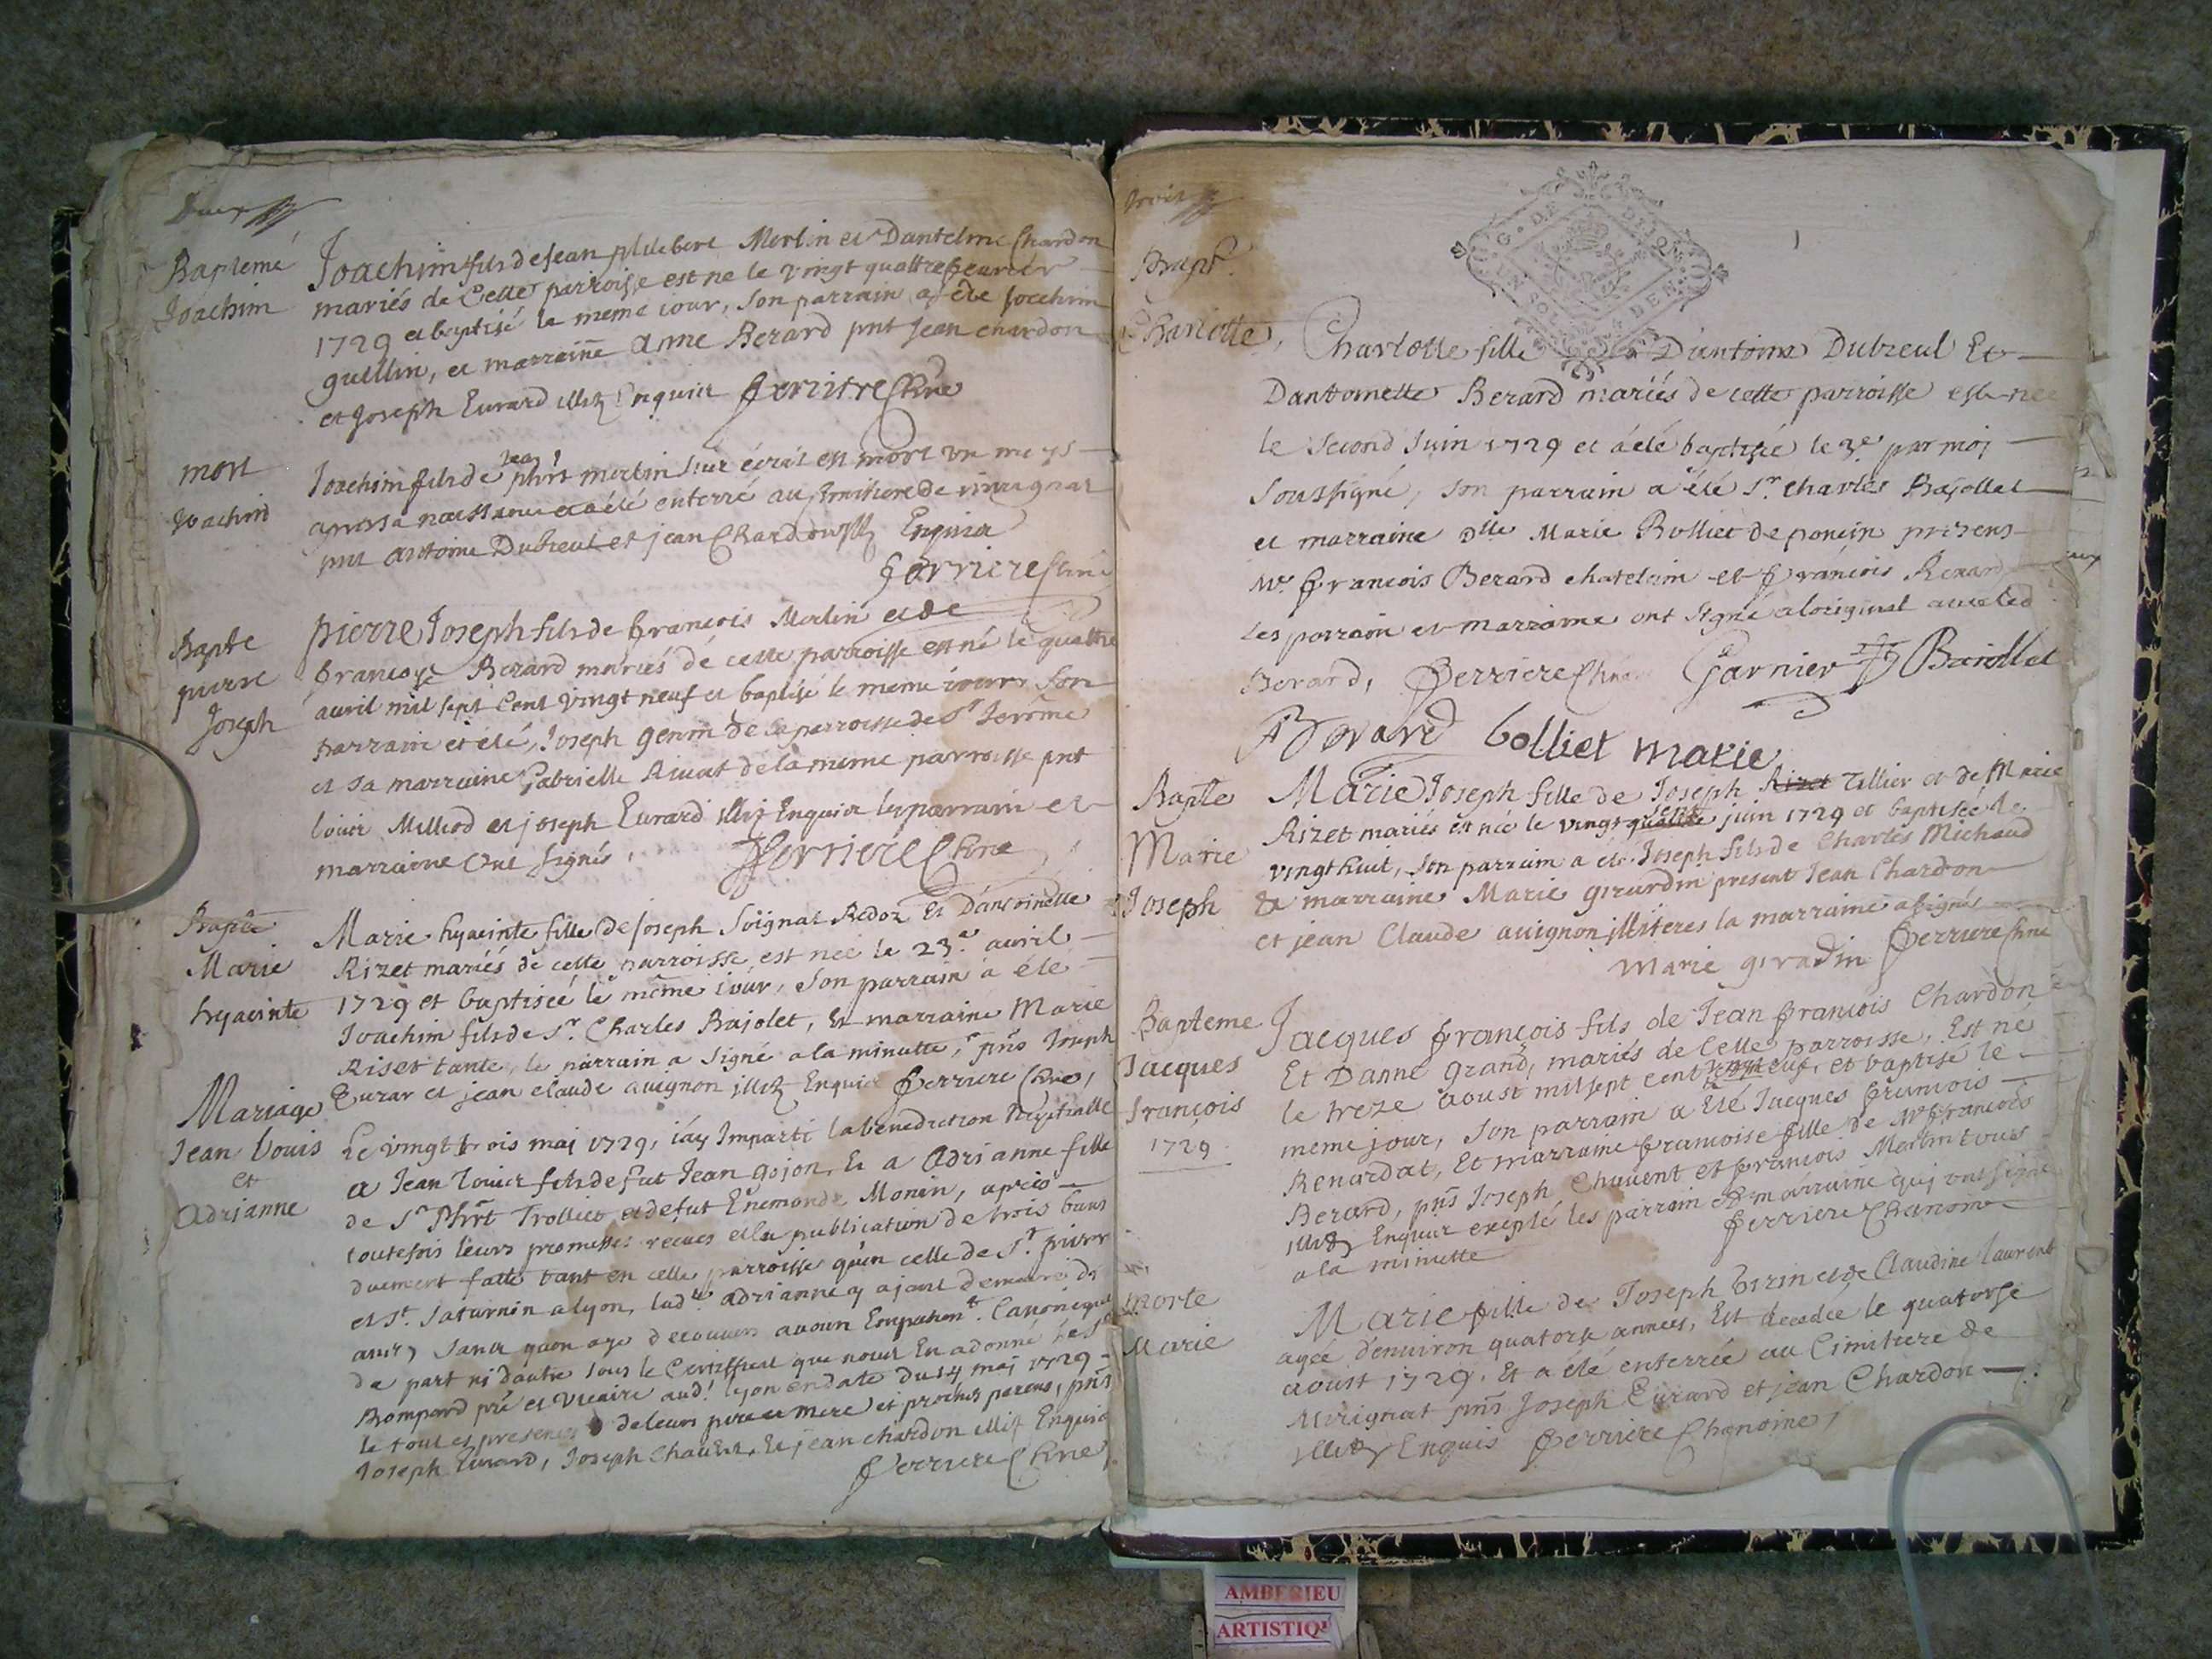 Deux
Baptemé
Joachim
Joachim fils de Jean philebert Merlin et Dantelme Chardon
mariés de Cette parroisse est ne le vingt quattre feurier
1729 et baptisé le meme iour, son parrain a été Joachim
guillin, et marrainne anne Berard pnt Jean chardon
et Joseph Eurard illit Enquist ferriere Chne
mort
Joachin
Joachim fils de Jean phrt merlin sus écrit est mort un moys
apres sa naissance et a été enterré au Cimitiere de mirignat
pnt antoine Dubreul et jean Chardon illit Enquis
ferriere Chne
Bapte
pierre
Joseph
pierre Joseph fils de françois Merlin et de
françoise Berard mariés de cette parroisse est né le quattre
auril mil sept Cent vingt neuf et baptisé le meme iour, son
parrain et été, Joseph genin de la parroisse de St Jerôme
et sa marraine Gabrielle Riuat de la meme parroisse pnt
louis Milliod et joseph Eurard illit Enquis les parrain et
marraine ont signés, ferriere Chne
Bapte
Marie
hyacinte
Marie hyacinte fille de Joseph Soignat Redoz Et Dantoinette
Rizet mariés de cette parroisse, est née le 23e auril
1729 et baptiseé le même iour, son parrain a été
Joachim fils de Sr Charles Bajolet, Et marraine Marie
Riset tante, le parrain a signé a la minutte, pns Joseph
Eurar et jean claude auignon illit Enquis ferriere Chne,
Mariage
Jean Louis
et
Adrianne
Le vingt trois maj 1729, iay Imparti la benediction Nuptialle
a Jean Louis fils de fut Jean gojon, Et a Adrianne fille
de Sr Phrt Trolliet et de fut Enemonde Monin, aprés
toutefois leurs promesses recues et la publication de trois bans
duement faite tant en cette parroisse qu'en celle de St. pierre
et St. Saturnin a lyon, ladte adrianne y ajant demeuré dx
ans, sans quon aye decouuert aucun Empechemt. Canonique
de part ni dautre sous le Certifficat que nous En a donné le Sr
Rompard pre et Vicaire aud! lyon en date du 14 maj 1729
le tout es presences de leurs pere et mere et proches parens, pns
Joseph Eurard, Joseph Chauent, Et jean chardon illit Enquis
ferriere Chne
trois
Bapt.
Charlotte,
Charlotte fille Dantoine Dubreul Et
Dantoinette Berard mariés de cette parroisse est née
le second Juin 1729 et a été baptisée le 3e par moj
soussigné, son parrain a été Sr. Charles Bajollet
et marraine Dlle Marie Bolliet de poncin presens
Mr. françois Berard chatelain et françois Renard
Les parrain et marraine ont signé aloriginal auec led
Berard, ferriere Chne Garnier Baiollet
Berard bolliet marie
Bapte
Marie
Joseph
Marie Joseph fille de Joseph Rizet Tellier et de Marie
Rizet mariés est née le vingt sept juin 1729 et baptiseé le
vingt huit, son parrain a été Joseph fils de Charles Michaud
& marraine Marie girardin present Jean Chardon
et jean Claude auignon illiteres la marraine a signés
marie giradin ferriere Chne
Bapteme
Jacques
françois
1729
Jacques françois fils de Jean françois Chardon
Et Danne Grand, mariés de Cette parroisse, Est né
le treze aoust mil sept cent vingt neuf, et baptisé le
meme jour, son parrain a été Jacques françois
Renardat, Et marraine françoise fille de Mr françois
Berard, pns Joseph Chauent et françois Merlin tous
illit Enquis exeplé les parrain et marraine quj ont signé
a la minutte ferriere Chanoine
morte
Marie
Marie fille de Joseph Tirin et de Claudine laurent
ageé denuiron quatorse années, Est decedée le quatorse
aoust 1729, Et a été enterrée au Cimitiere de
Mirignat pns Joseph Eurard et jean Chardon
illit Enquis ferriere Chanoine,
AMBERIEU
ARTISTIQU